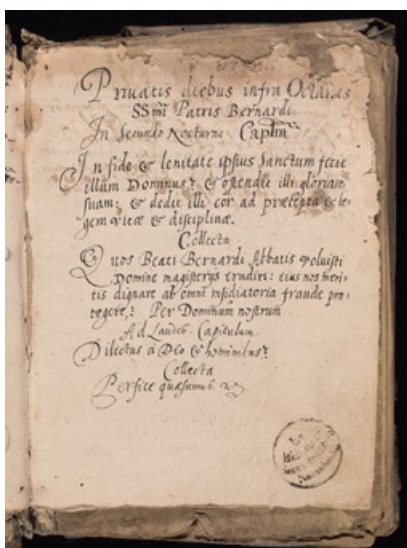 Priuatis diebus infra Octauas
SSmi Patris Bernardi
In Secundo Nocturno Caplm
In fide & lenitate ipsius Sanctum fecit
illum Dominus? & ostendit illi gloriam
suam: & dedit illi cor ad præcepta & le-
gem vitæ & disciplinæ.
Collecta
Quos Beati Bernardi Abbatis voluisti
Domine magisterijs erudiri: eius nos meri-
tis dignare ab omni insidiatoria fraude pro-
tegere,? Per Dominum nostrum
Ad Laudes. Capitulum
Dilectus a Deo & hominibus?
Collecta
Perfice quæsumus